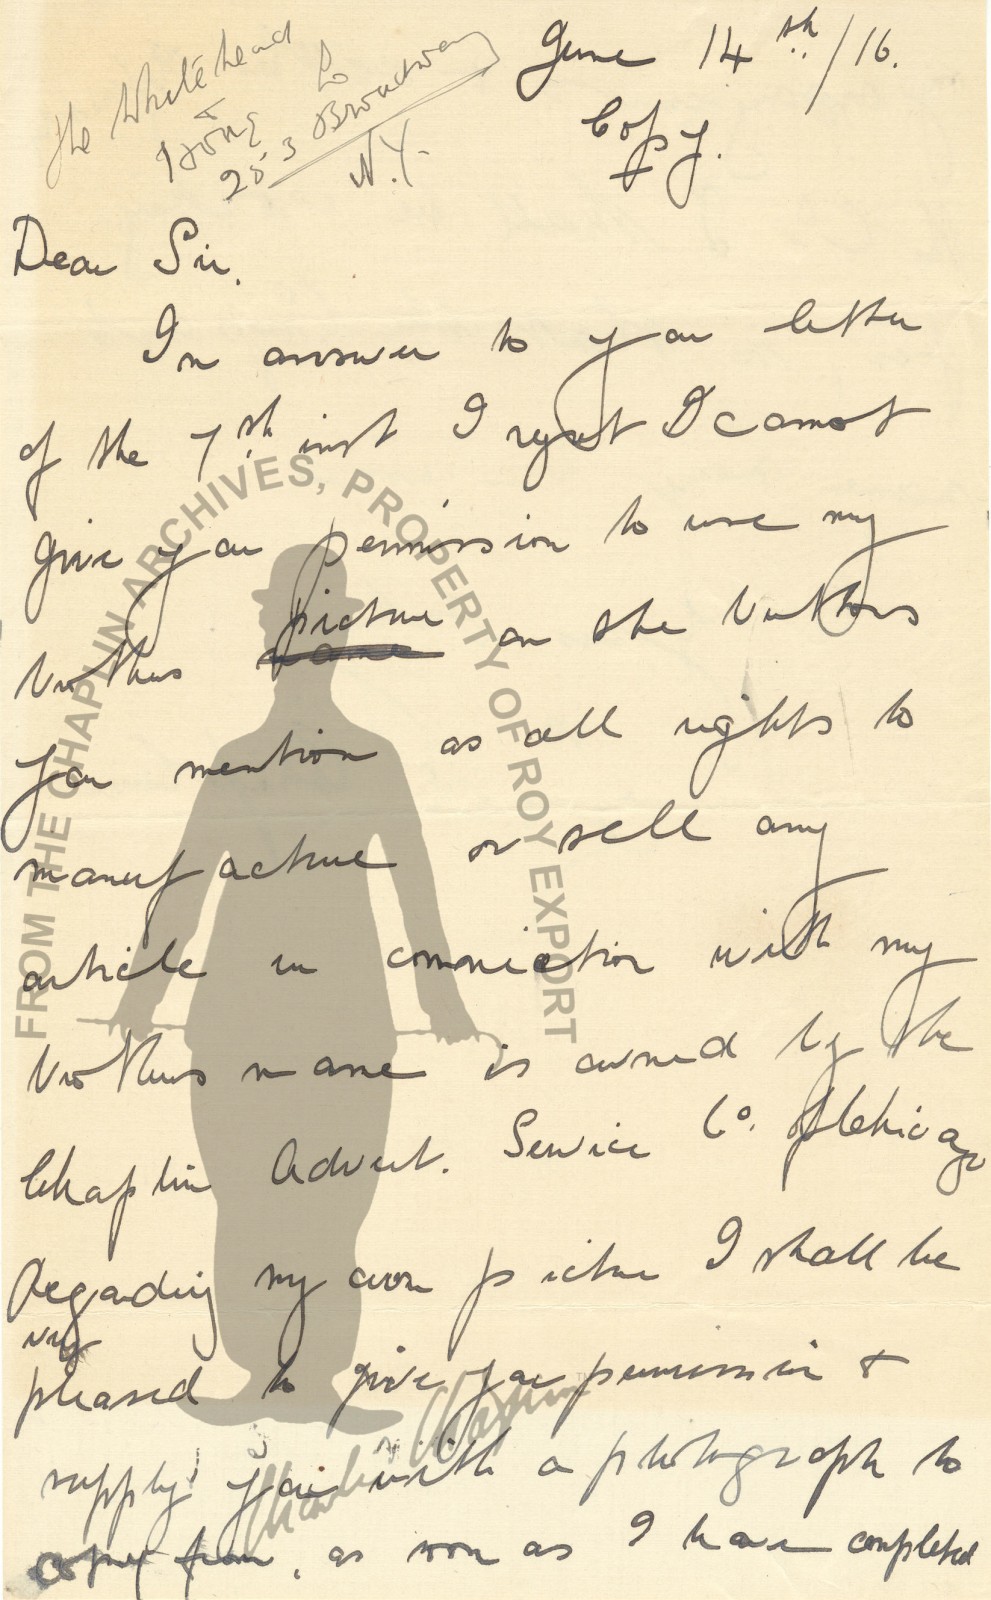 The Whitehead
& Hoag Co
253 Broadway
N.Y.
June 14th/16.
Copy.
Dear Sir.
In answer to your letter
of the 7th inst I regret I cannot
give you permission to use my
brothers name picture on the buttons
you mention as all rights to
manufacture or sell any
article in connection with my
brothers name is owned by the
Chaplin Advert. Service Co. of Chicago
Regarding my own picture I shall be
very
pleased to give you permission &
supply you with a photograph to
copy from, as soon as I have completed
FROM THE CHAPLIN ARCHIVES, PROPERTY OF ROY EXPORT
Charlie Chaplin